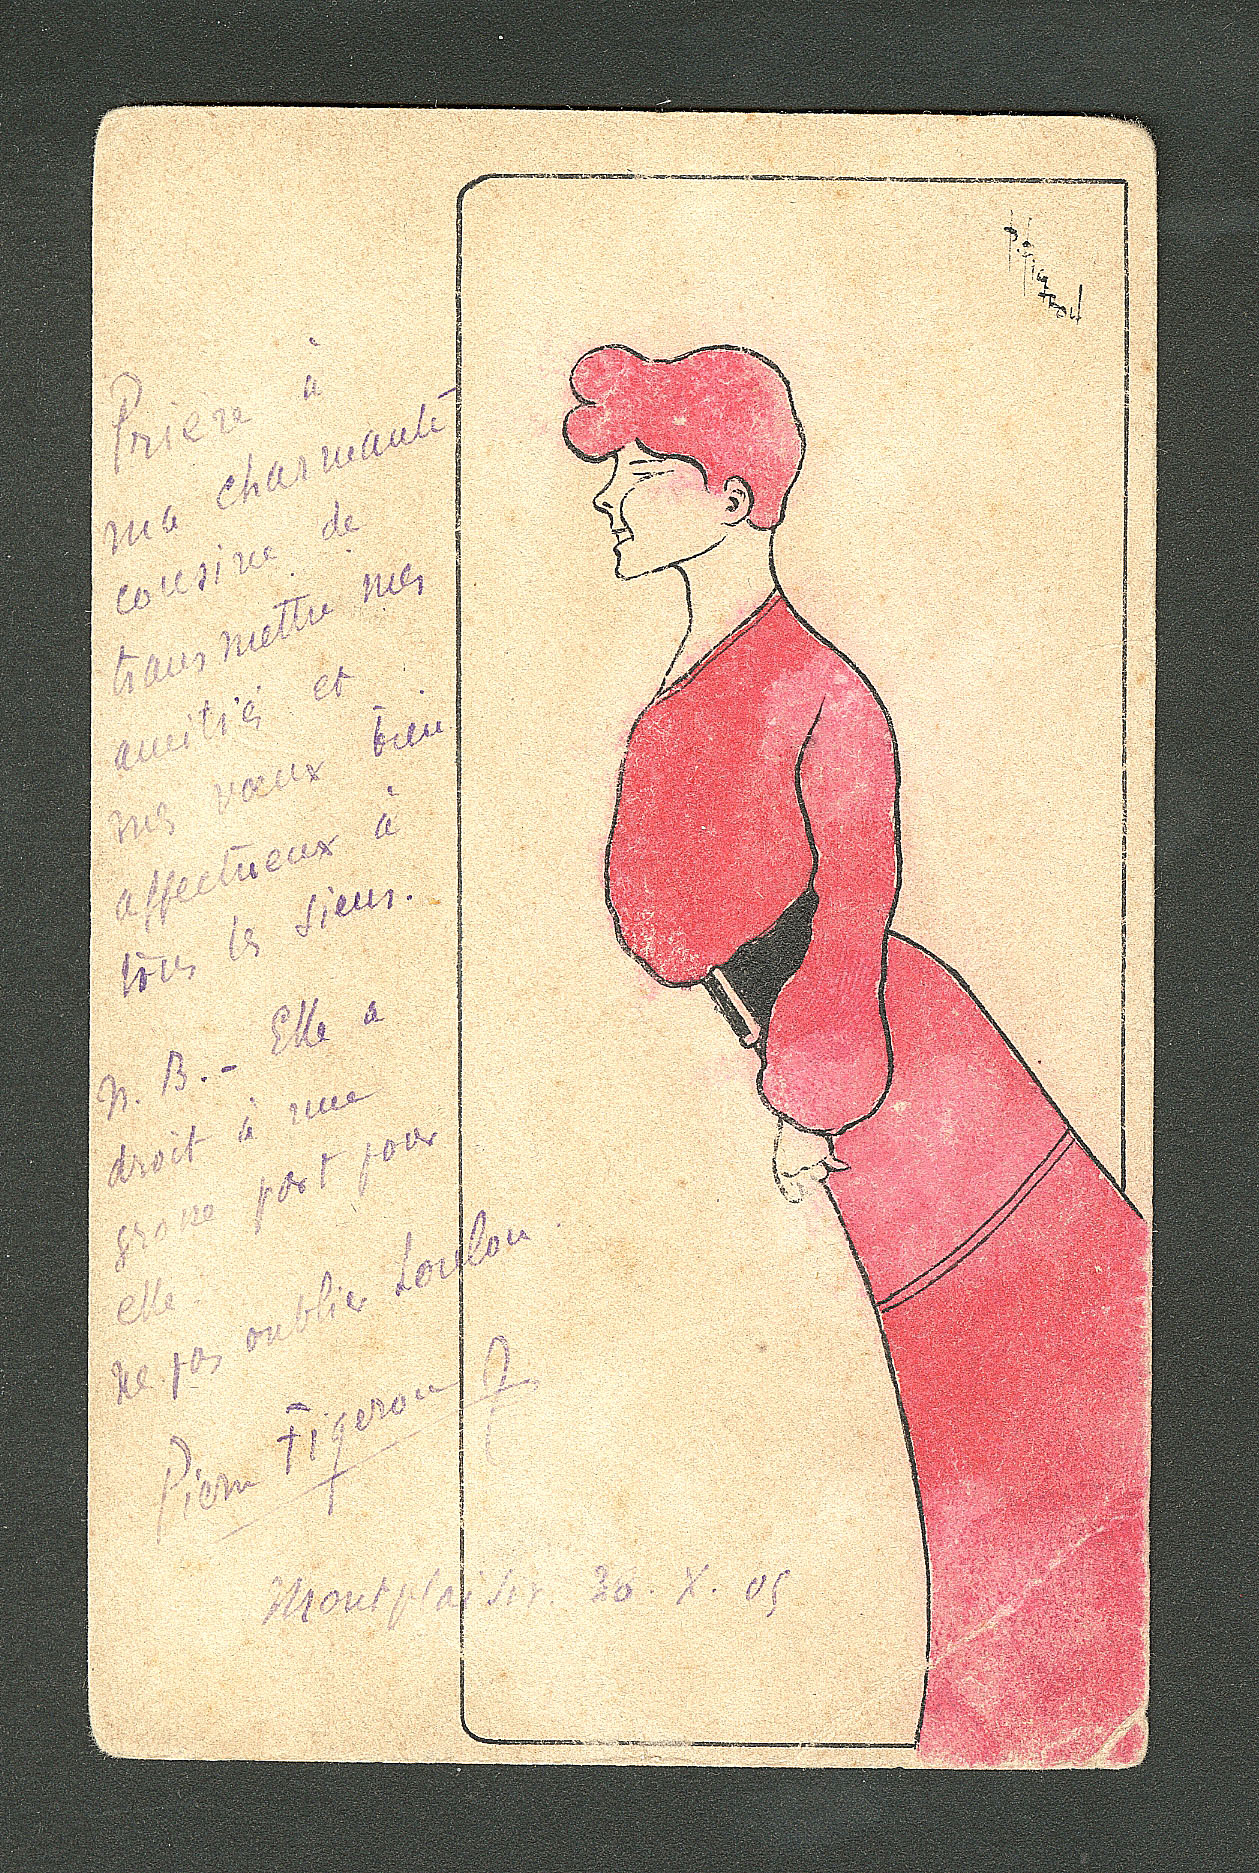 Prière à
ma charmante
cousine de
transmettre mes
amitiés et
mes vœux bien
affectueux à
tous les siens.
N. B. - Elle a
droit à une
grosse part pour
elle
ne pas oublier Loulou
Pierre Figerou
Montplaisir. X. 05